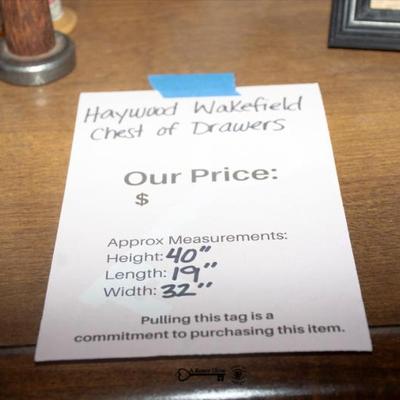 Haywood Wakefield
Chest of Drawers
Our Price:
$
Approx Measurements:
Height: 40"
Length: 19"
Width: 32"
Pulling this tag is a
commitment to purchasing this item.